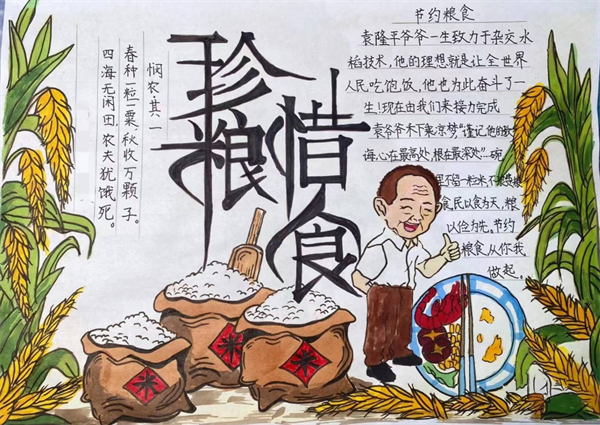 珍惜
粮食
悯农其一
春种一粒粟,秋收万颗子。
四海无闲田,农夫犹饿死。
节约粮食
袁隆平爷爷一生致力于杂交水
稻技术,他的理想就是让全世界
人民吃饱饭,他也为此奋斗了一
生!现在由我们来接力完成
袁爷爷禾下乘凉梦"谨记他的教
诲,心在最高处,根在最深处"…碗
里不留一粒米,不浪费粮
食,民以食为天,粮
以俭为先,节约
粮食从你我
做起。
米
米
米